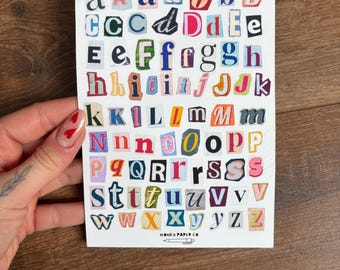 a a b b b
c C c D d E e
E e f F f g g
h h i i i j J J k
k K L L m m m
n N n n O o p p
p q R R r r s s
s t t t u u v v
w w x x y y z z
WONKY PAPER CO